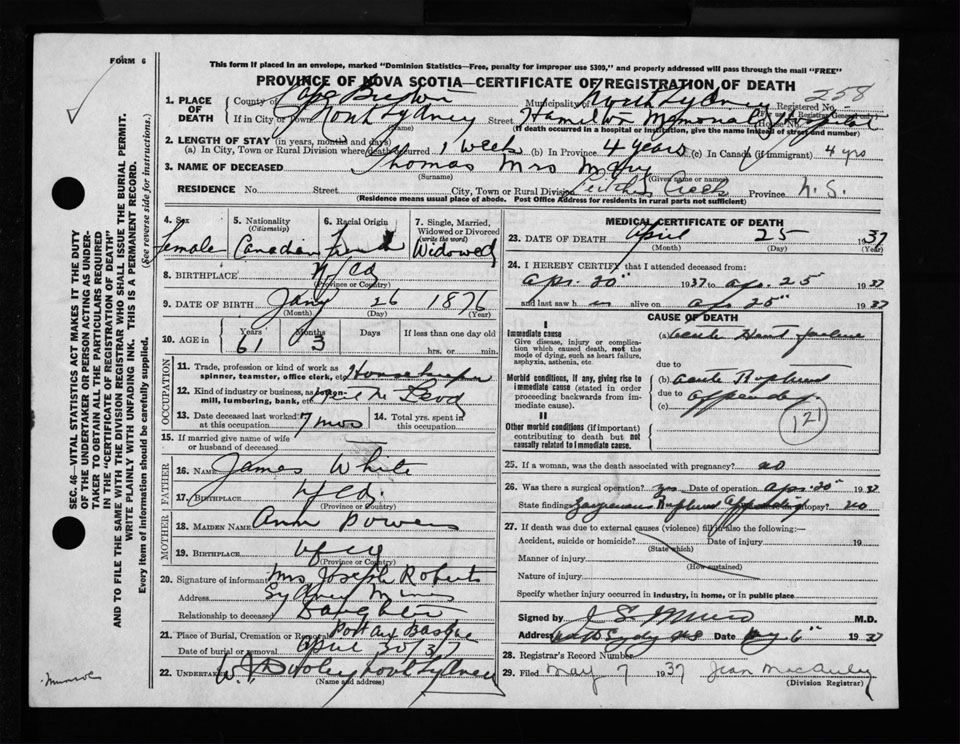 FORM 6
This form if placed in an envelope, marked "Dominion Statistics—Free, penalty for improper use $300," and properly addressed will pass through the mail "FREE"
PROVINCE OF NOVA SCOTIA—CERTIFICATE OF REGISTRATION OF DEATH
SEC. 46—VITAL STATISTICS ACT MAKES IT THE DUTY
OF THE UNDERTAKER OR PERSON ACTING AS UNDER-
TAKER TO OBTAIN ALL THE PARTICULARS REQUIRED
IN THE "CERTIFICATE OF REGISTRATION OF DEATH"
AND TO FILE THE SAME WITH THE DIVISION REGISTRAR WHO SHALL ISSUE THE BURIAL PERMIT.
WRITE PLAINLY WITH UNFADING INK. THIS IS A PERMANENT RECORD.
Every item of Information should be carefully supplied. (See reverse side for instructions.)
1. PLACE OF DEATH
County of Cape Breton Municipality of North Sydney Registered No. 258
(For use of Registrar General only)
If in City or Town North Sydney Street Hamilton Memorial Hospital House No.
(Name) (If death occurred in a hospital or institution, give the name instead of street and number)
2. LENGTH OF STAY (in years, months and days)
(a) In City, Town or Rural Division where death occurred 1 week (b) In Province 4 years (c) In Canada (if immigrant) 4 yrs
3. NAME OF DECEASED Thomas Mrs Mary
(Surname) (Given name or names)
RESIDENCE No. Street City, Town or Rural Division Leitches Creek Province N.S.
(Residence means usual place of abode. Post Office Address for residents in rural parts not sufficient)
4. Sex Female
5. Nationality (Citizenship) Canadian
6. Racial Origin
7. Single, Married, Widowed or Divorced (write the word) Widowed
8. BIRTHPLACE Nfld
(Province or Country)
9. DATE OF BIRTH Jany 26 1876
(Month) (Day) (Year)
10. AGE in Years 61 Months 3 Days If less than one day old hrs. or min.
OCCUPATION
11. Trade, profession or kind of work as spinner, teamster, office clerk, etc. Housekeeper
12. Kind of industry or business, as cotton-mill, lumbering, bank, etc.
13. Date deceased last worked at this occupation 7 mos
14. Total yrs. spent in this occupation
15. If married give name of wife or husband of deceased
FATHER
16. NAME James White
17. BIRTHPLACE Nfld.
(Province or Country)
MOTHER
18. MAIDEN NAME Ann Powers
19. BIRTHPLACE Nfld
(Province or Country)
20. Signature of informant Mrs Joseph Roberts
Address Sydney Mines
Relationship to deceased Daughter
21. Place of Burial, Cremation or Removal Port aux Basque
Date of burial or removal April 30/37
22. UNDERTAKER W. J. Dooley North Sydney
(Name and address)
MEDICAL CERTIFICATE OF DEATH
23. DATE OF DEATH April 25 1937
(Month) (Day) (Year)
24. I HEREBY CERTIFY that I attended deceased from:
Apr. 20" 1937 to Apr. 25 1937
and last saw h alive on Apr. 25" 1937
CAUSE OF DEATH
I
Immediate cause
Give disease, injury or complication which caused death, not the mode of dying, such as heart failure, asphyxia, asthenia, etc.
(a) Acute Heart failure
due to
Morbid conditions, if any, giving rise to immediate cause (stated in order proceeding backwards from immediate cause).
(b) Acute Ruptured
due to
Appendix.
(c)
II
Other morbid conditions (if important) contributing to death but not causally related to immediate cause.
121
25. If a woman, was the death associated with pregnancy? no
26. Was there a surgical operation? yes Date of operation Apr. 20" 1937
State findings Gangrenous Ruptured Appendix Autopsy? no
27. If death was due to external causes (violence) fill in also the following:—
Accident, suicide or homicide? Date of injury 19
(State which)
Manner of injury
(How sustained)
Nature of injury
Specify whether injury occurred in industry, in home, or in public place
Signed by M.D.
Address Date May 6" 1937
28. Registrar's Record Number
29. Filed May 7 1937 Jean MacAuley
(Division Registrar)
Munroe